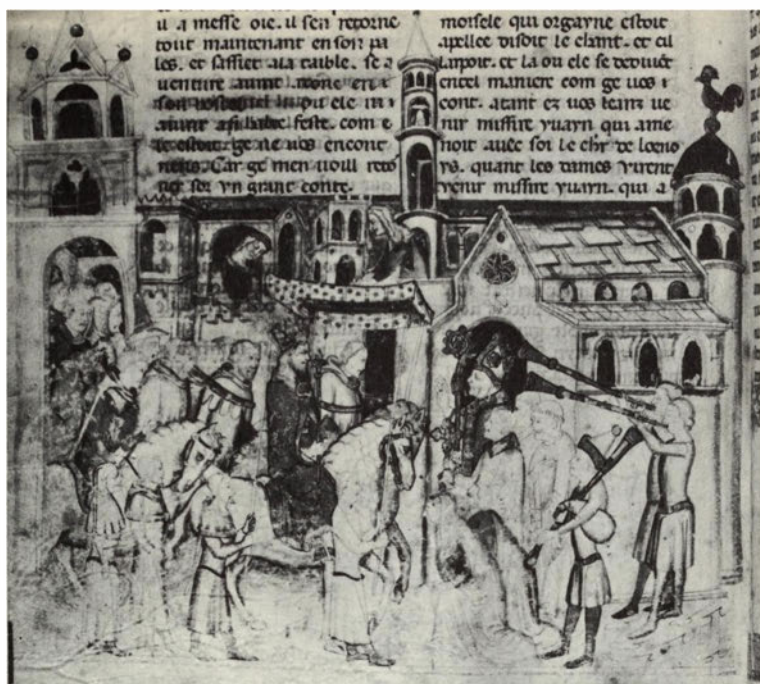 il a messe oie. il sen retorne
tout maintenant en son pa
les. et sassiet ala table. se a
uenture auint
son ele
auint a si haute feste. com e
le estoit. ge ne uos encont
Car ge men uoill reto
ner sor vn grant conte.
moisele qui orgayne estoit
apellee disoit le chant. et cil
et la ou ele se
en tel maniere com ge uos i
cont. atant ez uos leanz ue
nir missire yuayn qui ame
noit auec soi le chr de loeno
ys. quant les dames virent
venir missire yuayn. qui a